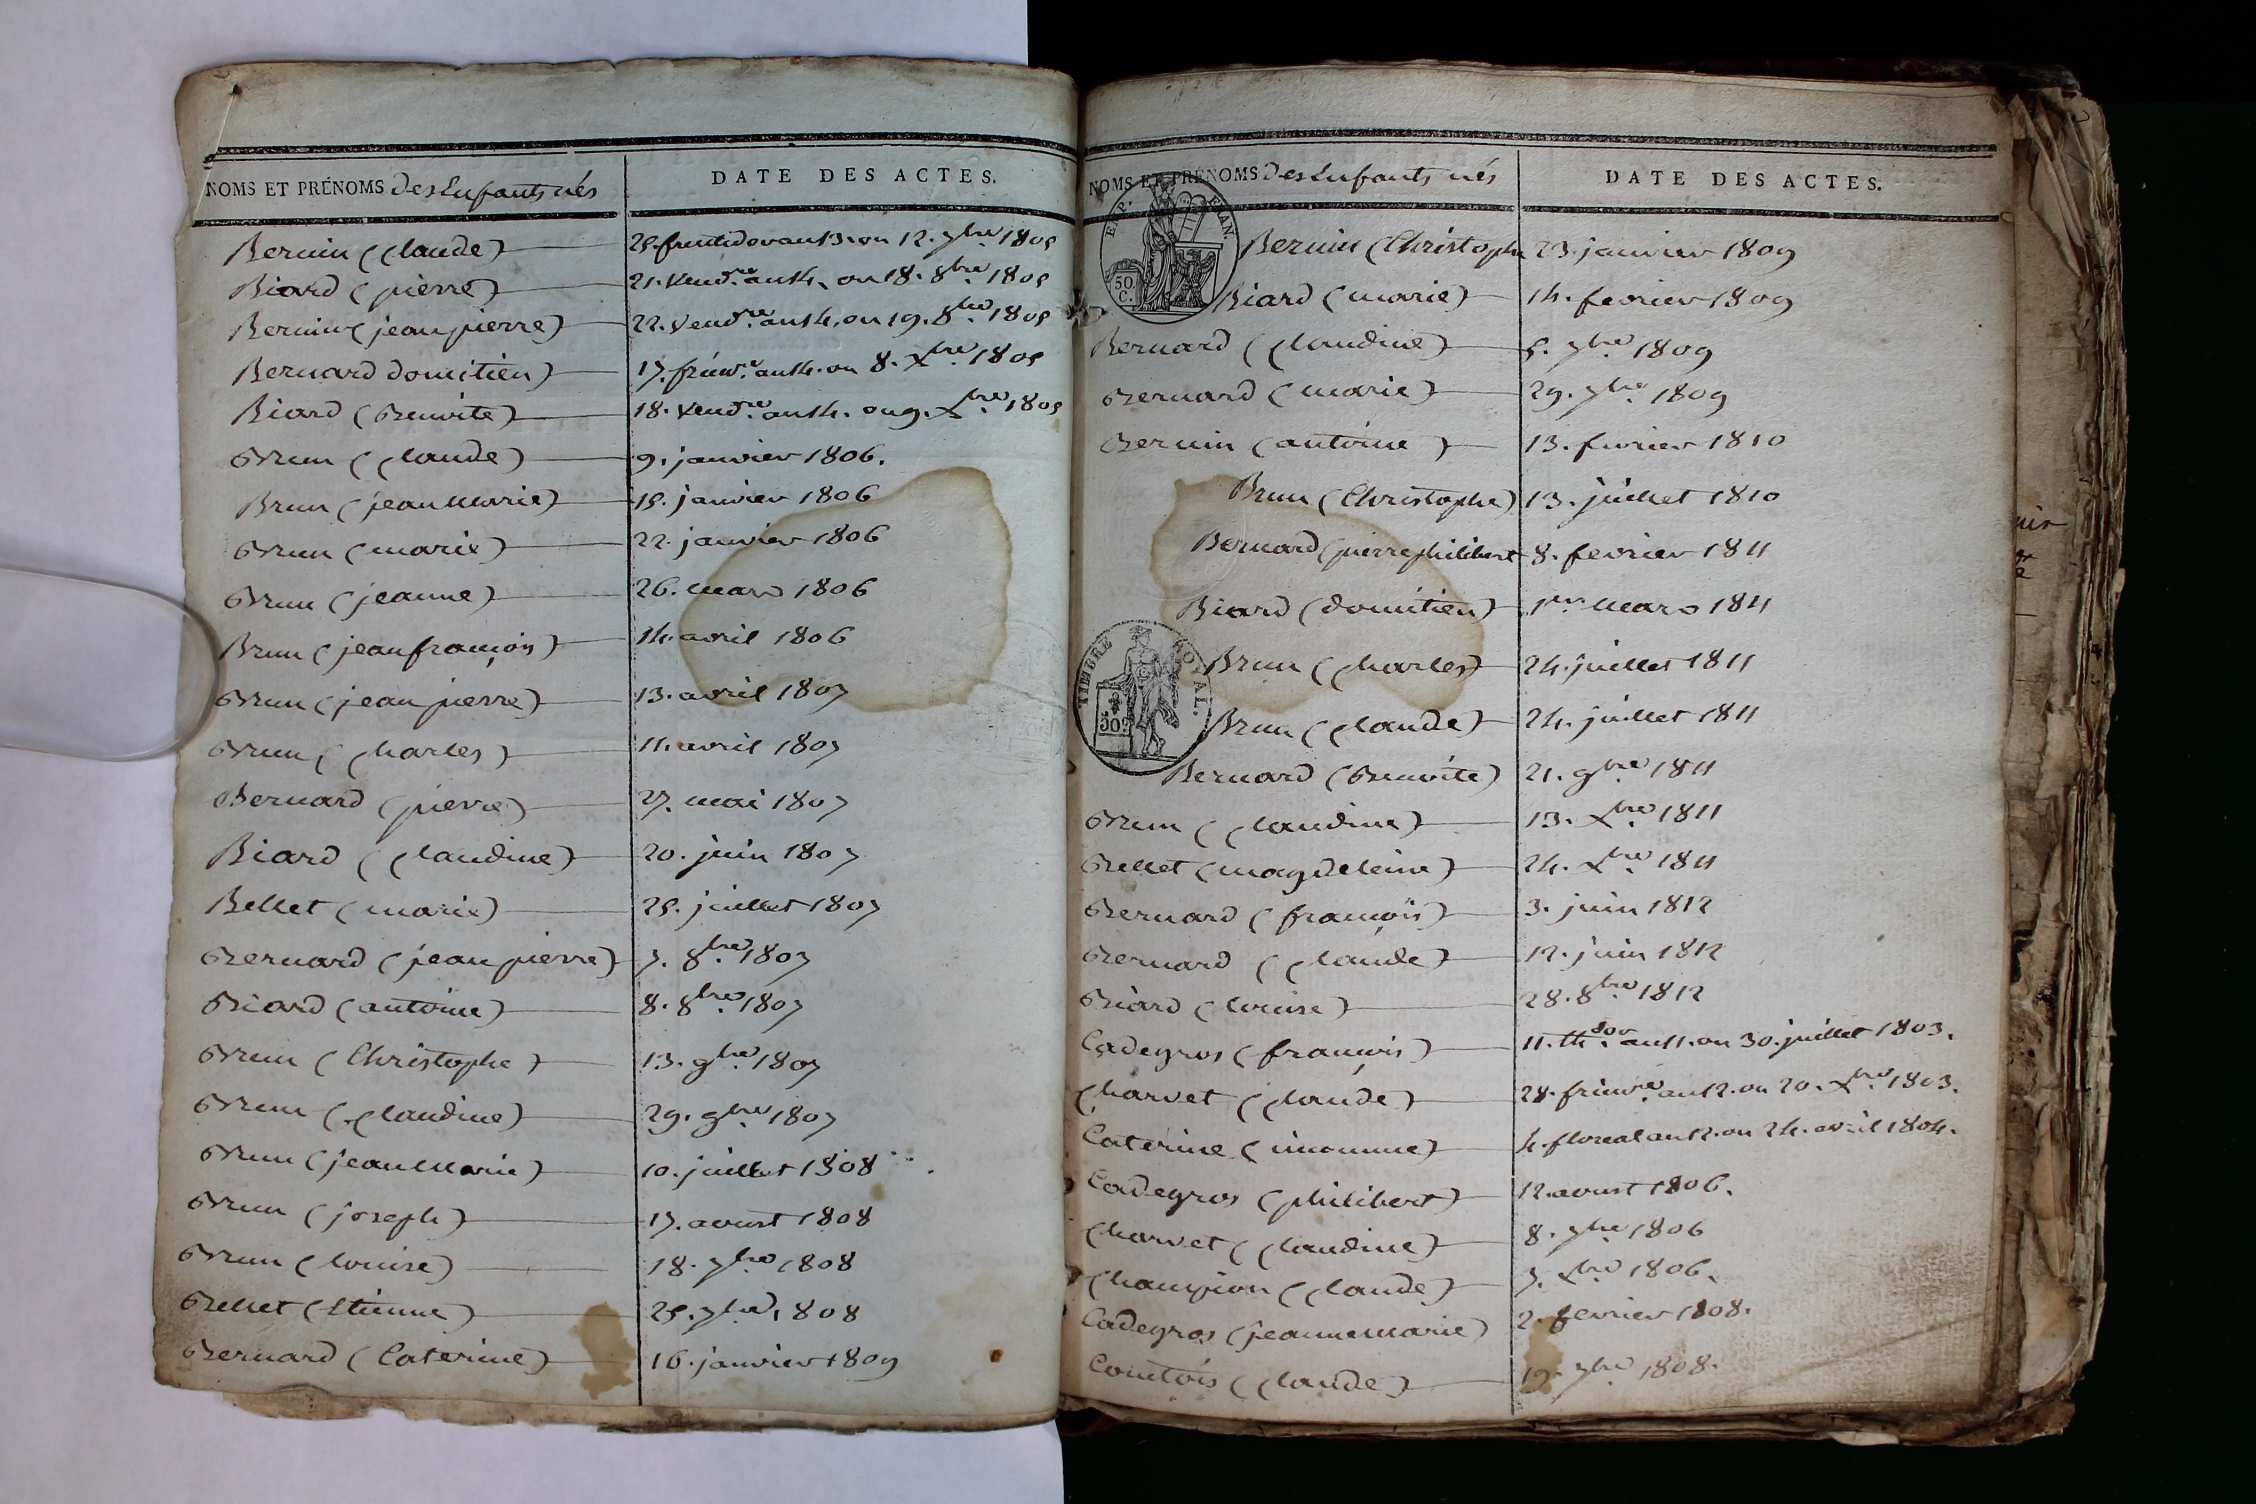 NOMS ET PRÉNOMS des Enfants nés
DATE DES ACTES.
Bernin (Claude) 25. fructidor an 13. ou 12. 7bre 1805
Biard (pierre) 21. Vendre an 14. ou 18. 8bre 1805
Bernin (jean pierre) 22. Vendre an 14. ou 19. 8bre 1805
Bernard domitien) 17. frimre an 14. ou 8. Xbre 1805
Biard (Benoite) 18. Vendre an 14. ou 9. Xbre 1805
Brun (Claude) 9. janvier 1806.
Brun (jean Marie) 15. janvier 1806
Brun (marie) 22. janvier 1806
Brun (jeanne) 26. mars 1806
Brun (jean françois) 14. avril 1806
Brun (jean pierre) 13. avril 1807
Brun (Charles) 11. avril 1807
Bernard (pierre) 27. mai 1807
Biard (Claudine) 20. juin 1807
Bellet (marie) 25. juillet 1807
Bernard (jean pierre) 7. 8bre 1807
Biard (antoine) 8. 8bre 1807
Brun (Christophe) 13. 9bre 1807
Brun (Claudine) 29. 9bre 1807
Brun (jean Marie) 10. juillet 1808
Brun (joseph) 17. aoust 1808
Brun (louise) 18. 7bre 1808
Bellet (Etienne) 25. 7bre 1808
Bernard (Caterine) 16. janvier 1809
NOMS ET PRÉNOMS des Enfants nés
DATE DES ACTES.
EMP. FRAN.
50 C.
Bernin (Christophe 23. janvier 1809
Biard (marie) 14. fevrier 1809
Bernard (Claudine) 5. 7bre 1809
Bernard (marie) 29. 7bre 1809
Bernin (antoine) 13. fevrier 1810
Brun (Christophe) 13. juillet 1810
Bernard (pierre philibert 8. fevrier 1811
Biard (domitien) 1er mars 1811
TIMBRE ROYAL.
50C
Brun (Charles) 24. juillet 1811
Brun (Claude) 24. juillet 1811
Bernard (Benoite) 21. 9bre 1811
Brun (Claudine) 13. Xbre 1811
Bellet (magdeleine) 24. Xbre 1811
Bernard (françois) 3. juin 1812
Bernard (Claude) 12. juin 1812
Biard (louise) 28. 8bre 1812
Cadegros (françois) 11. thdor an 11. ou 30. juillet 1803.
Charvet (Claude) 28. frimre an 12. ou 20. Xbre 1803.
Caterine (inconnue) 4. floreal an 12. ou 24. avril 1804.
Cadegros (philibert) 12. aoust 1806.
Charvet (Claudine) 8. 7bre 1806
Champion (Claude) 7. Xbre 1806.
Cadegros (jeanne marie) 2. fevrier 1808.
Comtois (Claude) 7bre 1808.